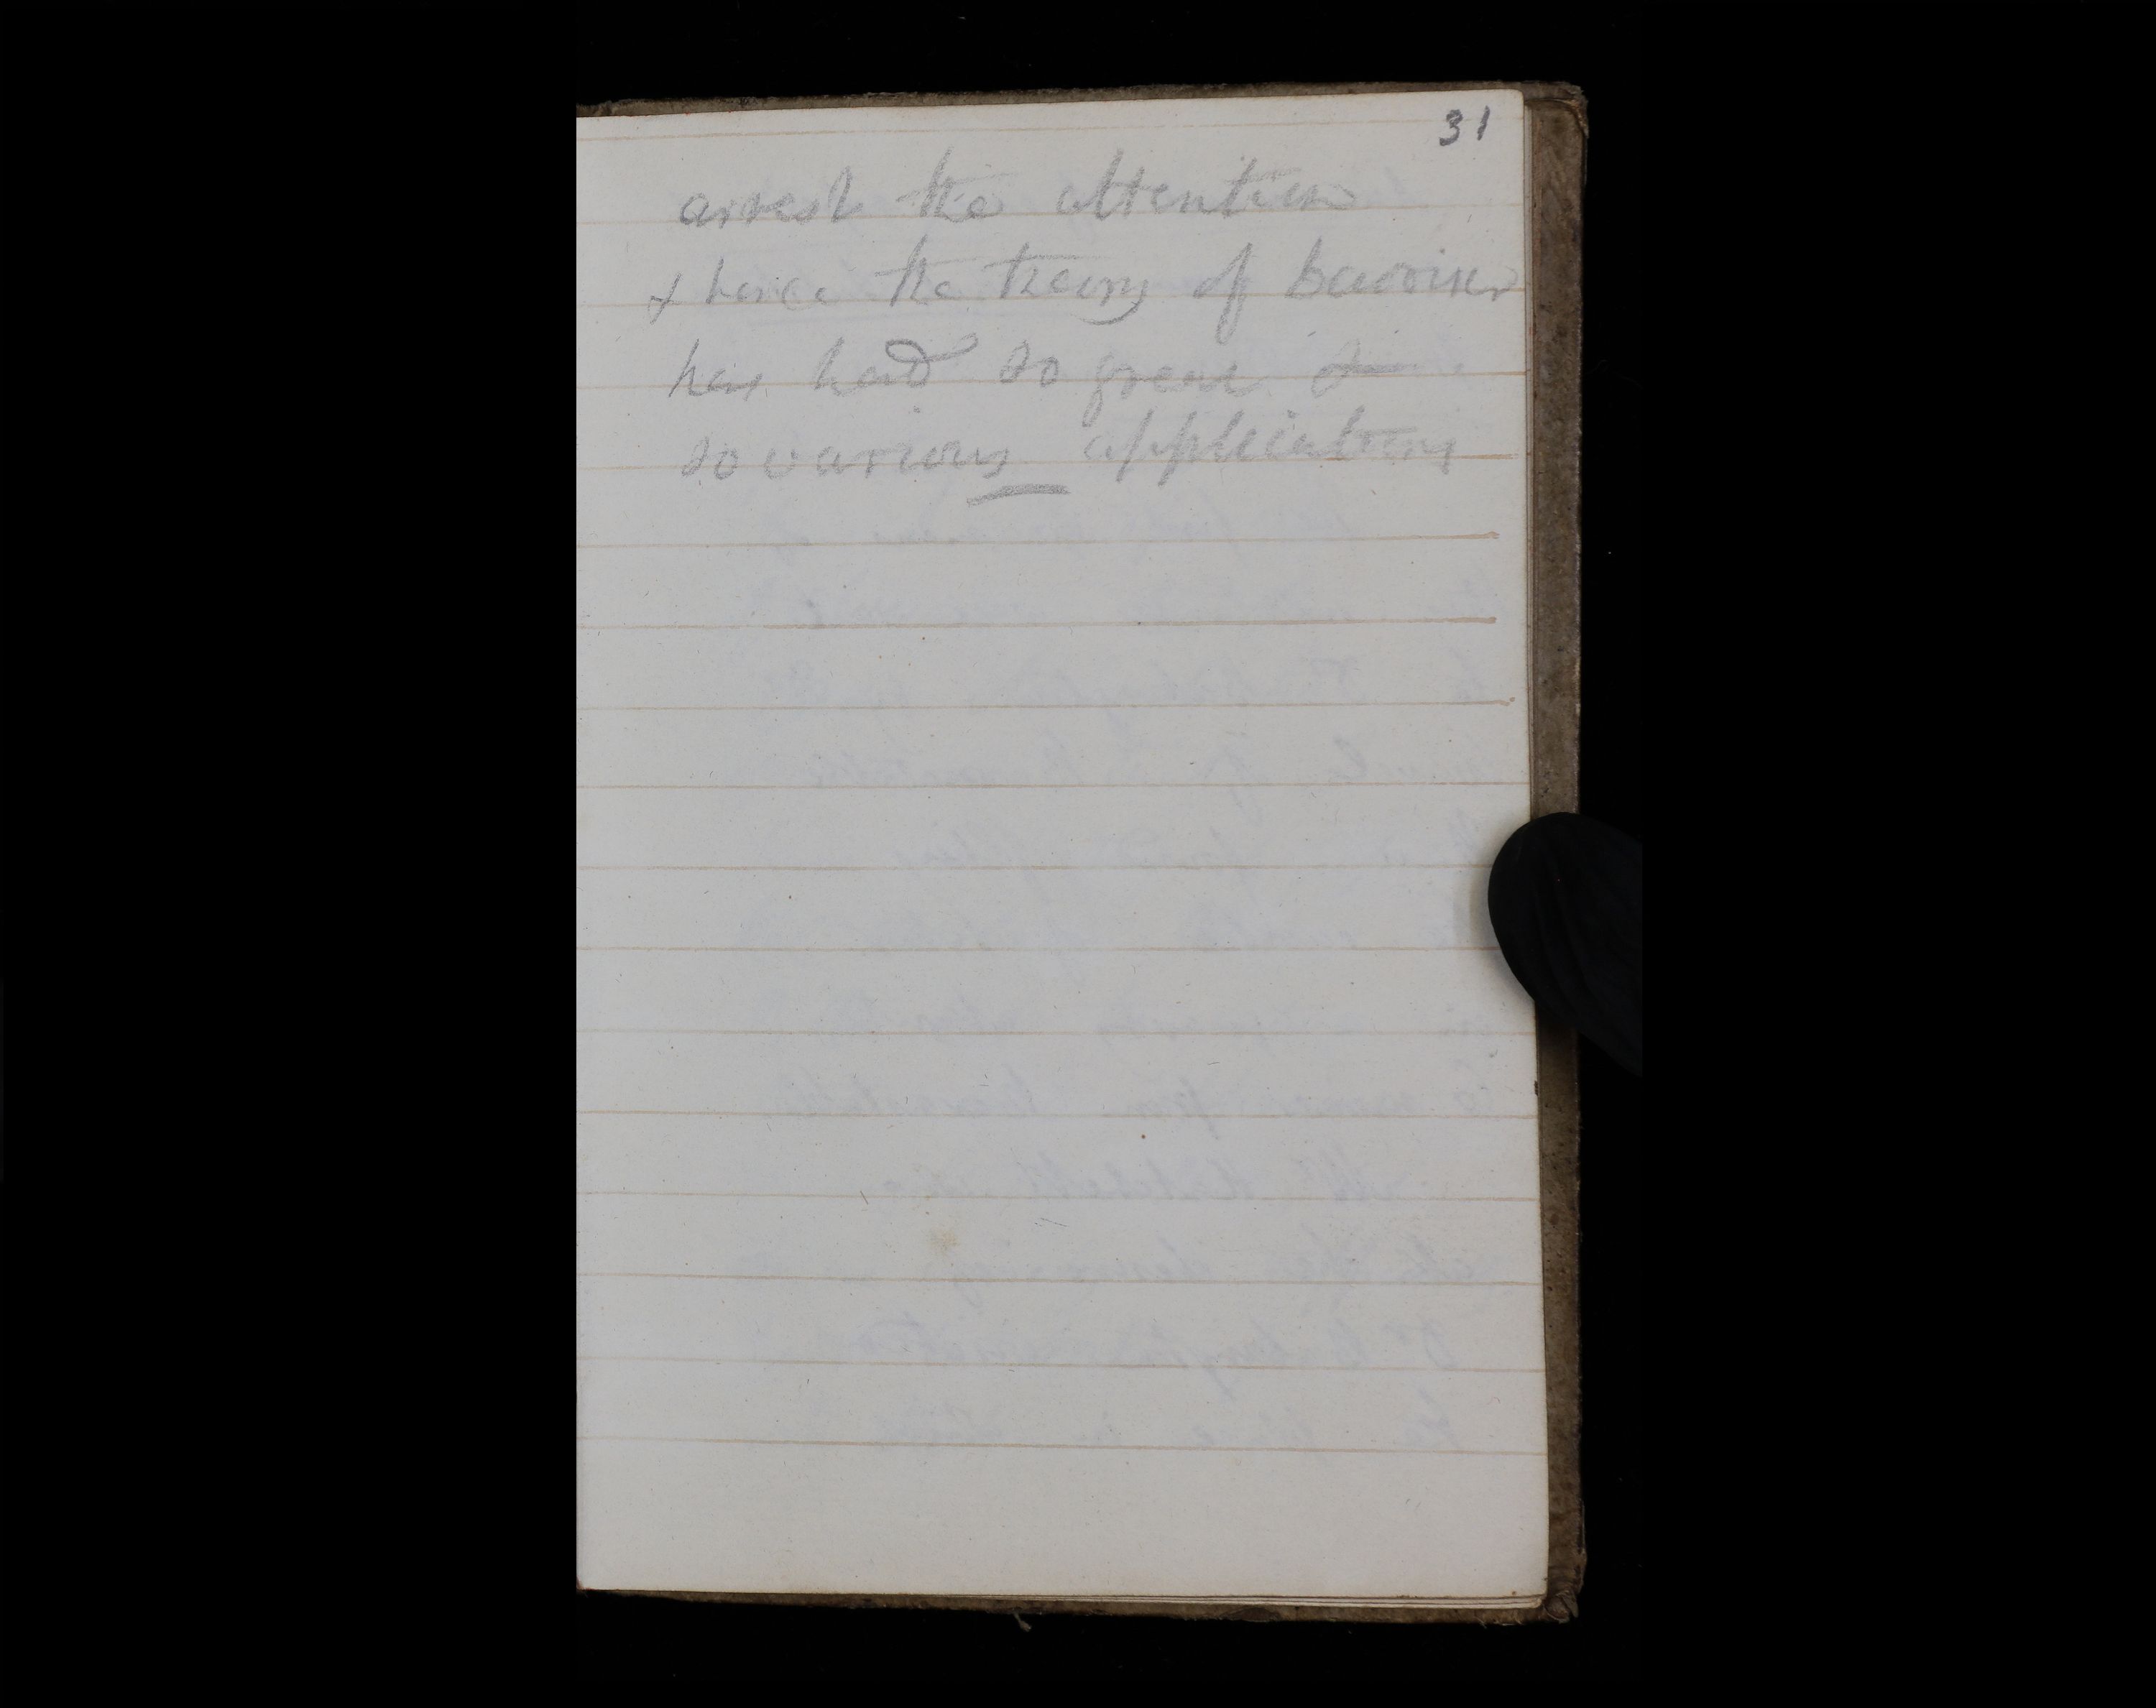 31
arrest the attention
& hence the theory of Lavoisier
has had so great &
so various applications